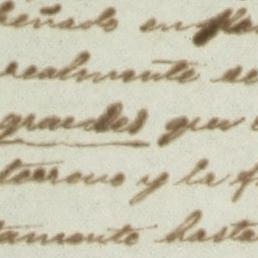 señado en
realmente se
grandes que
terreno y la f
tamente hasta